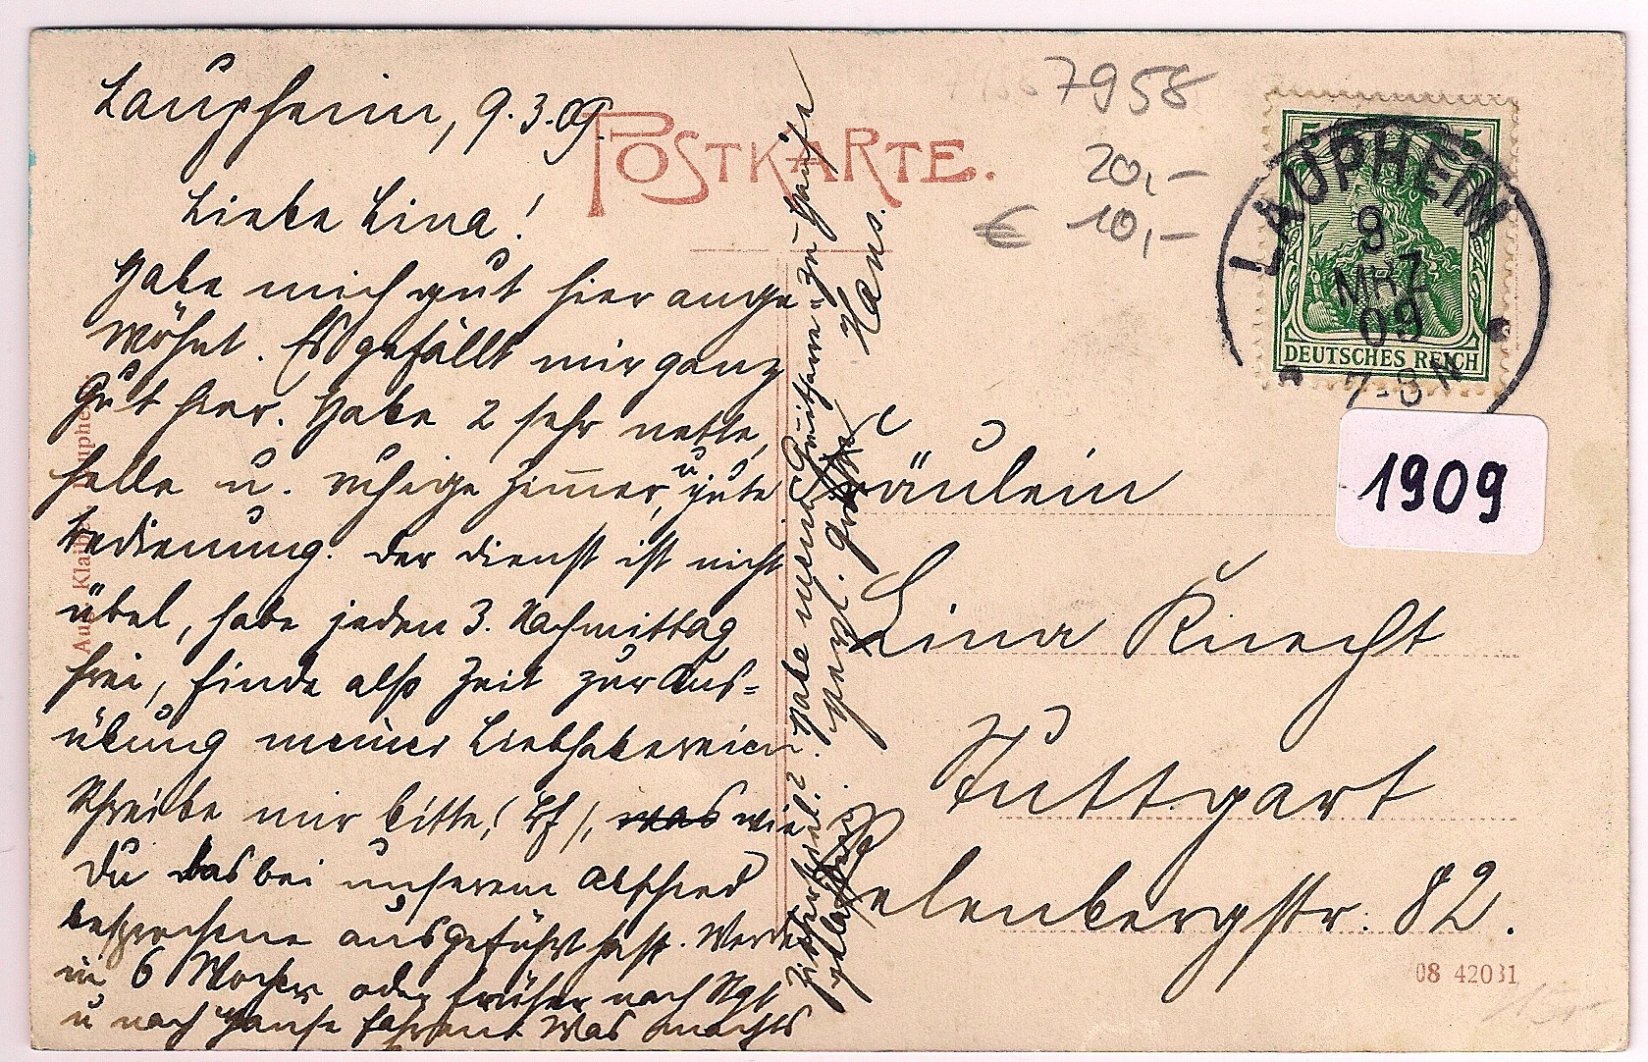 Laupheim, 9.3.09.
Liebe Lina!
Habe mich gut hier ange-
wöhnt. Es gefällt mir ganz
gut hier. Habe 2 sehr nette,
helle u. ruhige Zimmer, u. gute
Bedienung. Der Dienst ist nicht
übel, habe jeden 3. Nachmittag
frei, finde also Zeit zur Aus-
übung meiner Liebhabereien
Schreibe mir bitte, wie
Du das bei unserem Abschied
besprochene ausgeführt hast. Werde
in 6 Wochen oder früher nach Stgt
u nach Hause fahren. Was macht's
Zitherspiel? Habe meine Guitarre zu Hause
gelassen. Herzl. Grüße Hans.
POSTKARTE.
7958
20,-
€ 10,-
5 5
DEUTSCHES REICH
LAUPHEIM
9
MRZ
09
7-8 N
1909
Fräulein
Lina Knecht
Stuttgart
Relenbergstr. 82.
08 42031
Klaiber, Laupheim